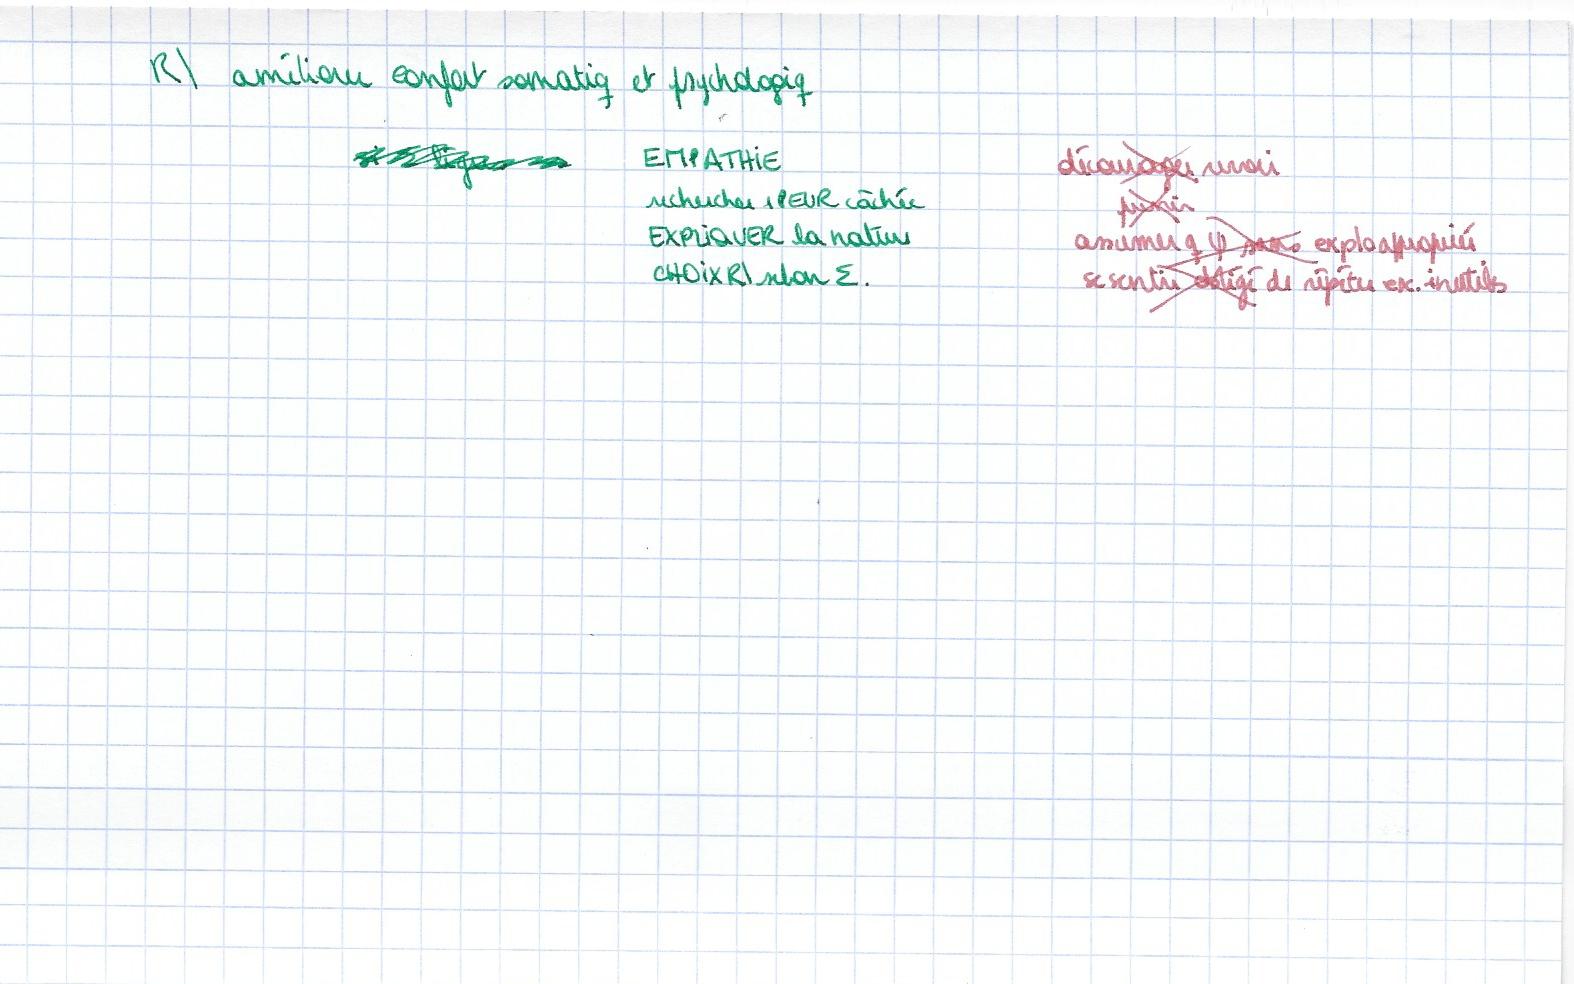 R\ améliorer confort somatiq et psychologiq
EMPATHiE
rechercher PEUR câchée
EXPLiQUER la nature
CHOiX R\ selon Σ.
décourager revoir
punir
assumer q ψ sans explo appropriée
se sentir obligé de répéter ex. inutiles